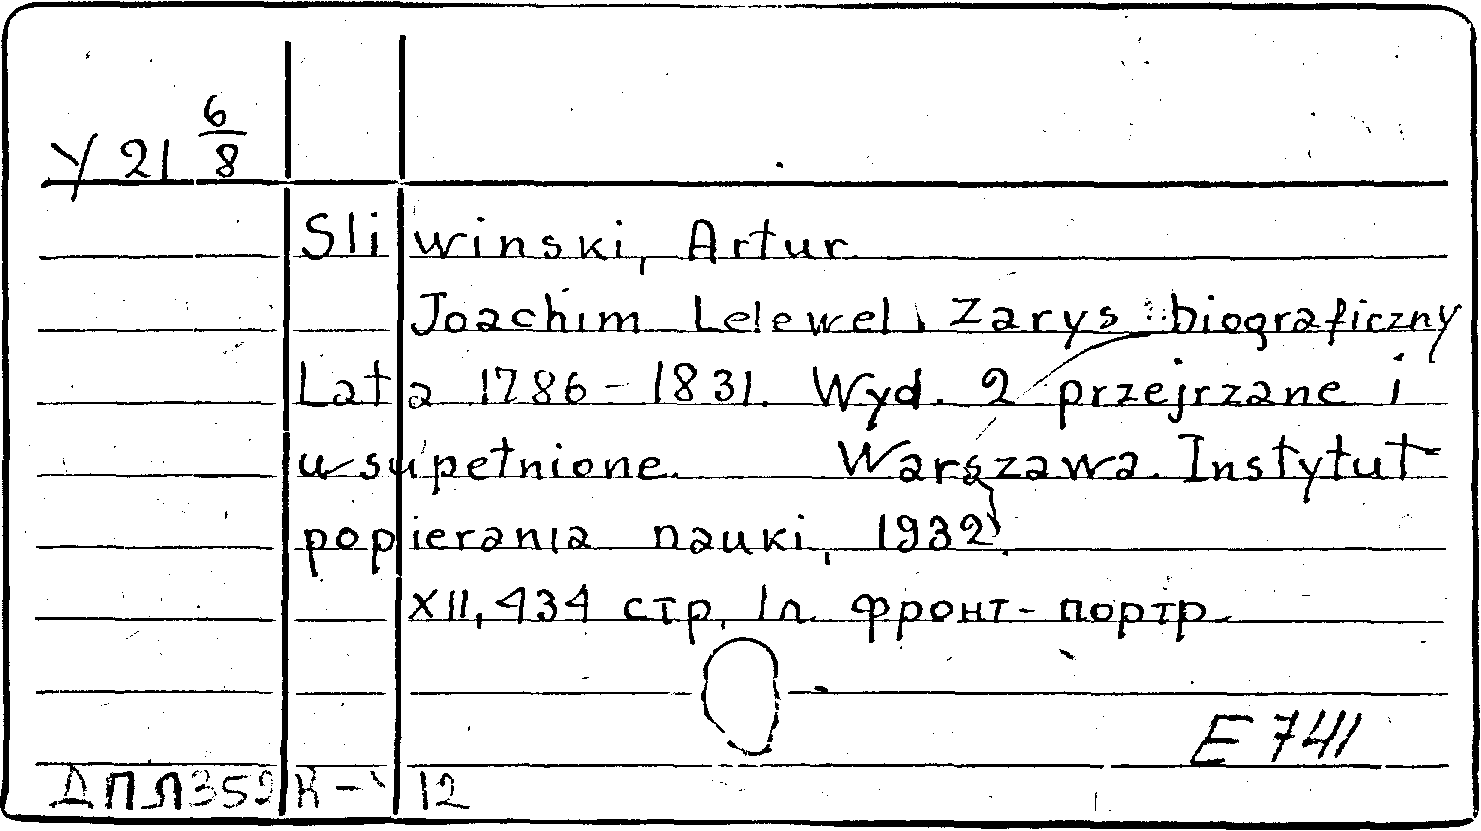 У 21 6/8
Sliwinski, Artur.
Joachim Lelewel. Zarys biograficzny
Lata 1786-1831. Wyd. 2 przejrzane i
usupełnione. Warszawa. Instytut
popierania nauki, 1932.
XII, 434 стр, 1л. фронт-портр.
E 741
ДПЛ 359 К- 12